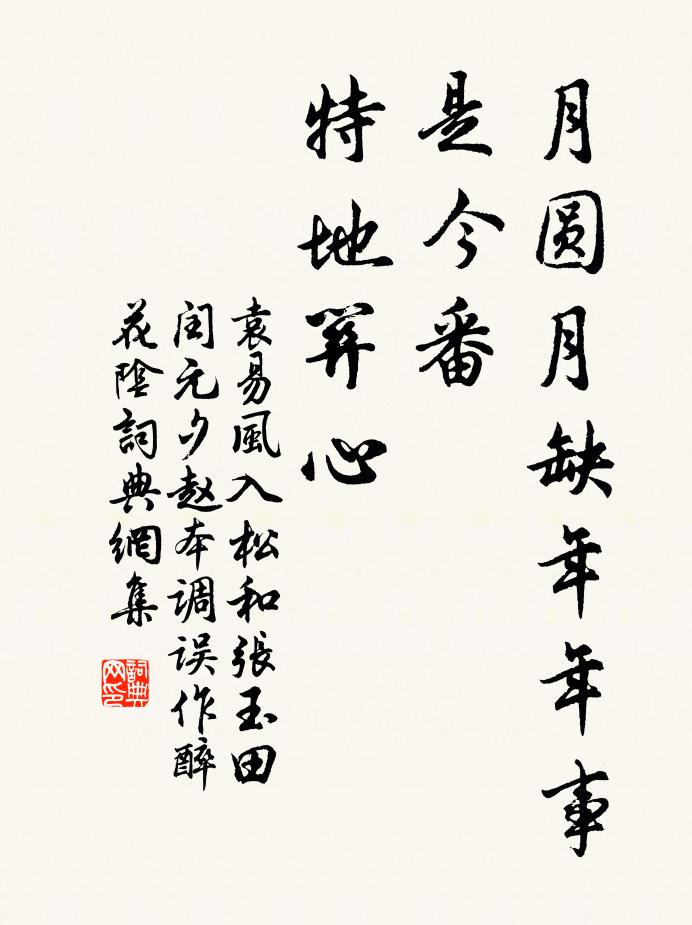 月圆月缺年年事
是今番
特地关心
袁易風入松和張玉田
闰元夕赵本调误作醉
花陰詞典網集
詞典网印